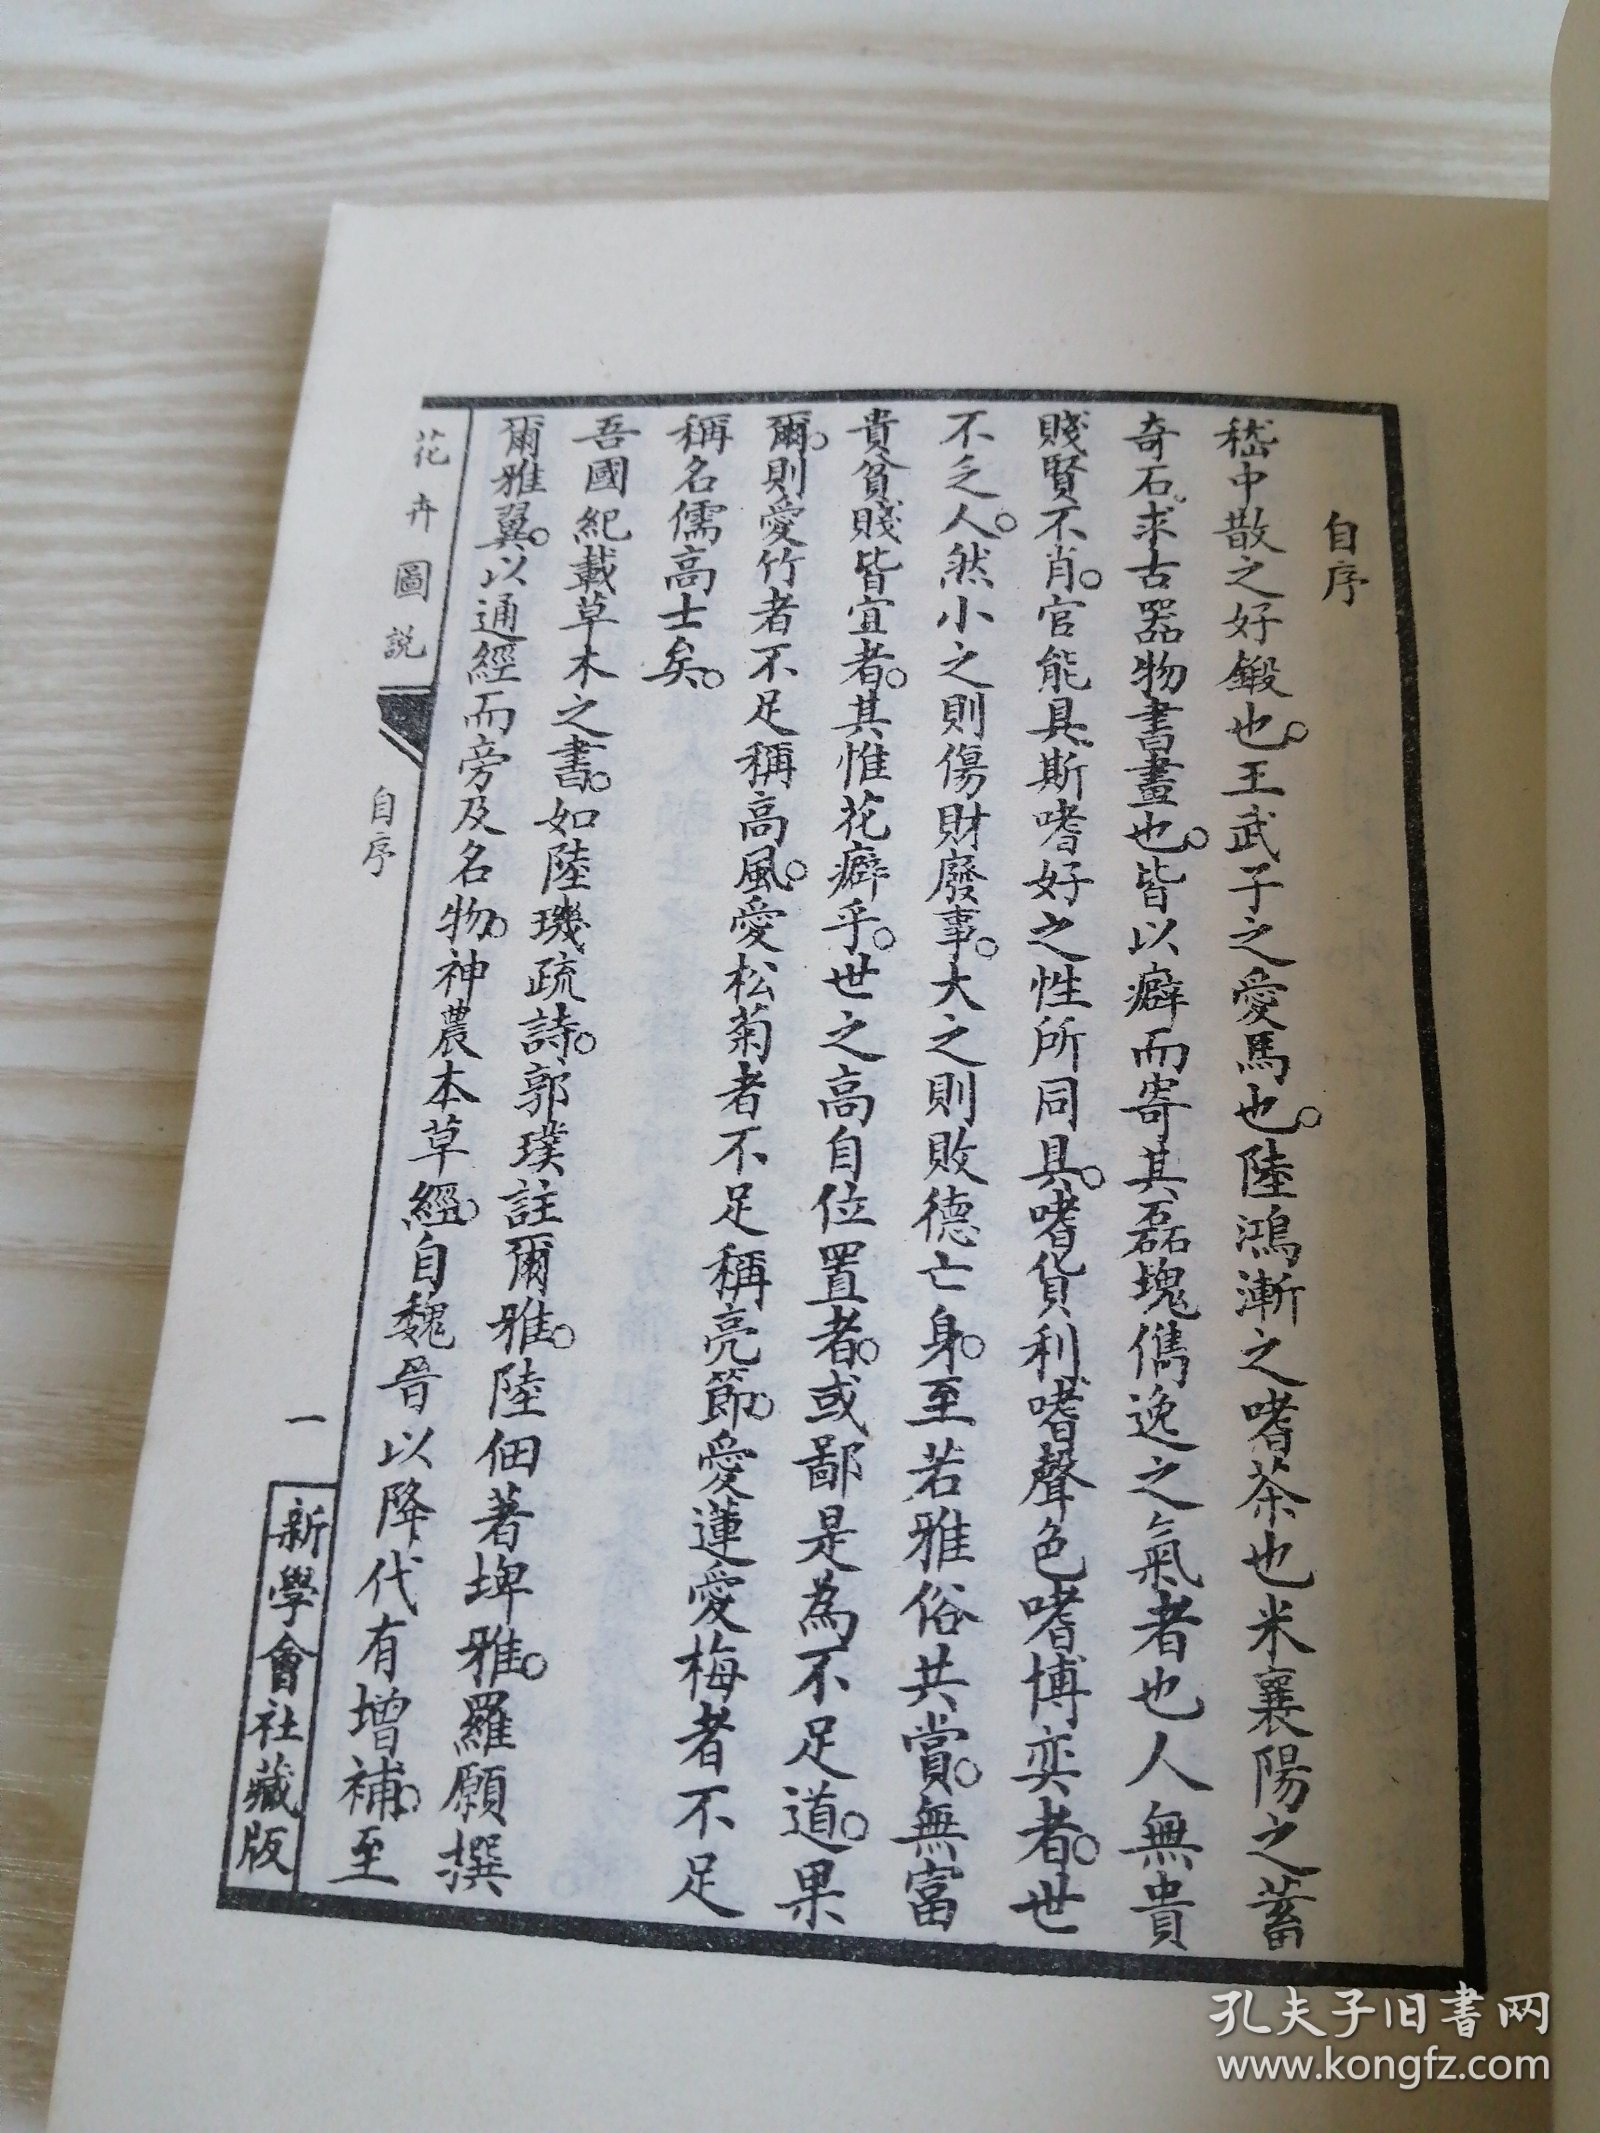 自序
嵇中散之好鍛也。王武子之愛馬也。陸鴻漸之嗜茶也米襄陽之蓄
奇石、求古器物書畫也。皆以癖而寄其磊塊儁逸之氣者也人無貴
賤賢不肖。官能具、斯嗜好之性所同具。嗜貨利、嗜聲色嗜博奕者。世
不乏人。然小之則傷財廢事。大之則敗德亡身。至若雅俗共賞。無富
貴貧賤皆宜者。其惟花癖乎。世之高自位置者。或鄙是為不足道。果
爾。則愛竹者不足稱高風。愛松菊者不足稱亮節。愛蓮愛梅者不足
稱名儒高士矣。
吾國紀載草木之書。如陸璣疏詩。郭璞註爾雅。陸佃著埤雅。羅願撰
爾雅翼。以通經而旁及名物。神農本草經。自魏晉以降、代有增補。至
花卉圖說
自序
一
新學會社藏版
孔夫子旧书网
www.kongfz.com